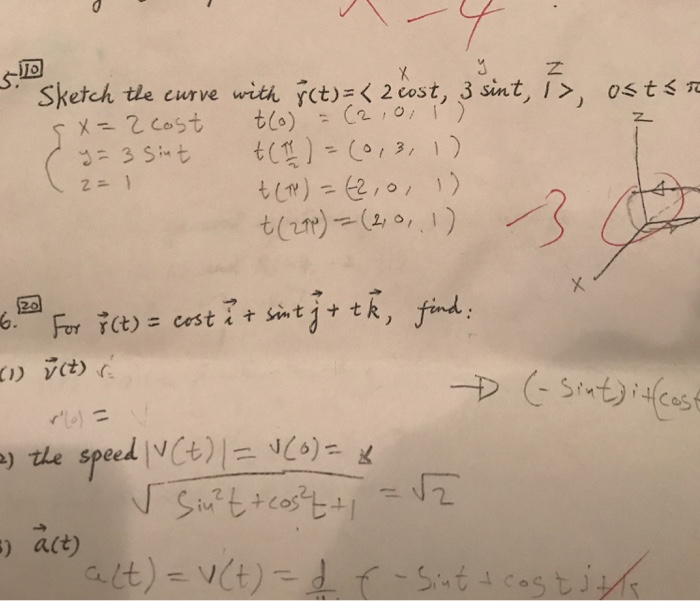 -4
5. 10 Sketch the curve with r⃗(t)=< 2 cost, 3 sint, 1 >, 0≤t≤π
x y z
x = 2 cost t(0) = (2, 0, 1)
y = 3 sint t(π/2) = (0, 3, 1)
z = 1 t(π) = (-2, 0, 1)
t(2π) = (2, 0, 1)
-3
z
x
6. 20 For r⃗(t) = cost i⃗ + sint j⃗ + t k⃗, find:
(1) v⃗(t)
→ (-sint)i+(cost
r'(0) =
2) the speed |V(t)| = V(0) =
√(sin²t+cos²t+1) = √2
3) a⃗(t)
a(t) = V(t) = d - sint + cost j +